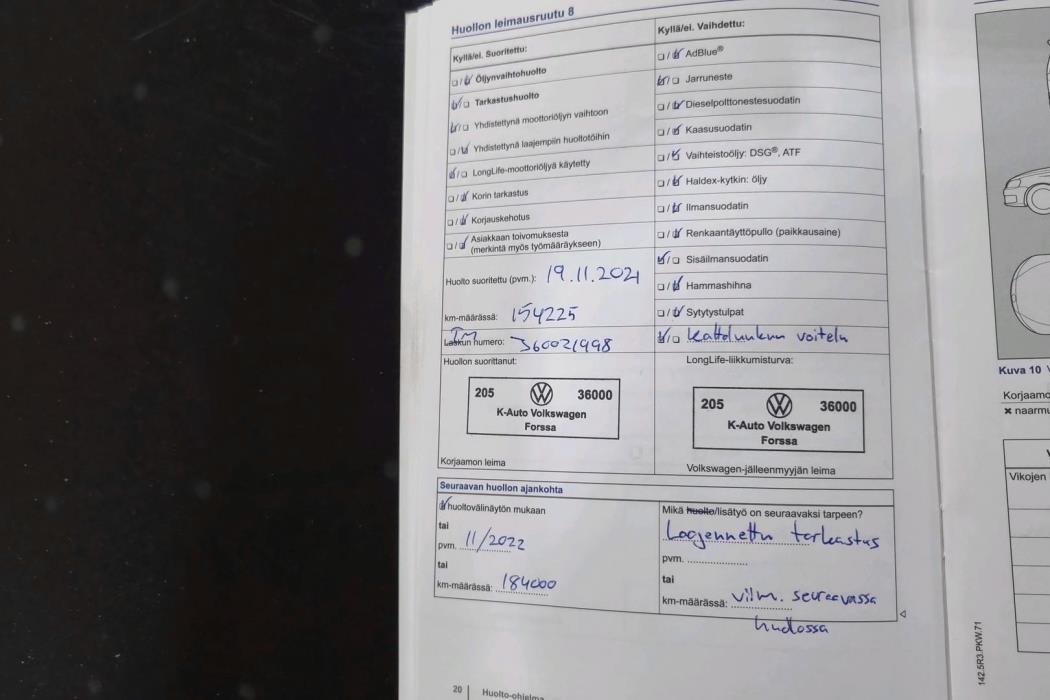 Huollon leimausruutu 8
Kyllä/ei. Suoritettu:
Öljynvaihtohuolto
Tarkastushuolto
Yhdistettynä moottoriöljyn vaihtoon
Yhdistettynä laajempiin huoltotöihin
LongLife-moottoriöljyä käytetty
Korin tarkastus
Korjauskehotus
Asiakkaan toivomuksesta
(merkintä myös työmääräykseen)
Huolto suoritettu (pvm.): 19.11.2021
km-määrässä: 154225
TM
Laskun numero: 360021998
Huollon suorittanut:
205 36000
K-Auto Volkswagen
Forssa
Korjaamon leima
Kyllä/ei. Vaihdettu:
AdBlue®
Jarruneste
Dieselpolttonestesuodatin
Kaasusuodatin
Vaihteistoöljy: DSG®, ATF
Haldex-kytkin: öljy
Ilmansuodatin
Renkaantäyttöpullo (paikkausaine)
Sisäilmansuodatin
Hammashihna
Sytytystulpat
Kattoluukun voitelu
LongLife-liikkumisturva:
205 36000
K-Auto Volkswagen
Forssa
Volkswagen-jälleenmyyjän leima
Seuraavan huollon ajankohta
huoltovälinäytön mukaan
tai
pvm. 11/2022
tai
km-määrässä: 184000
Mikä huolto/lisätyö on seuraavaksi tarpeen?
Laajennettu tarkastus
pvm.
tai
km-määrässä: viim. seuraavassa
huollossa
20 Huolto-ohjelma
142.5R3.PKW.71
Kuva 10
Korjaamo
Vikojen